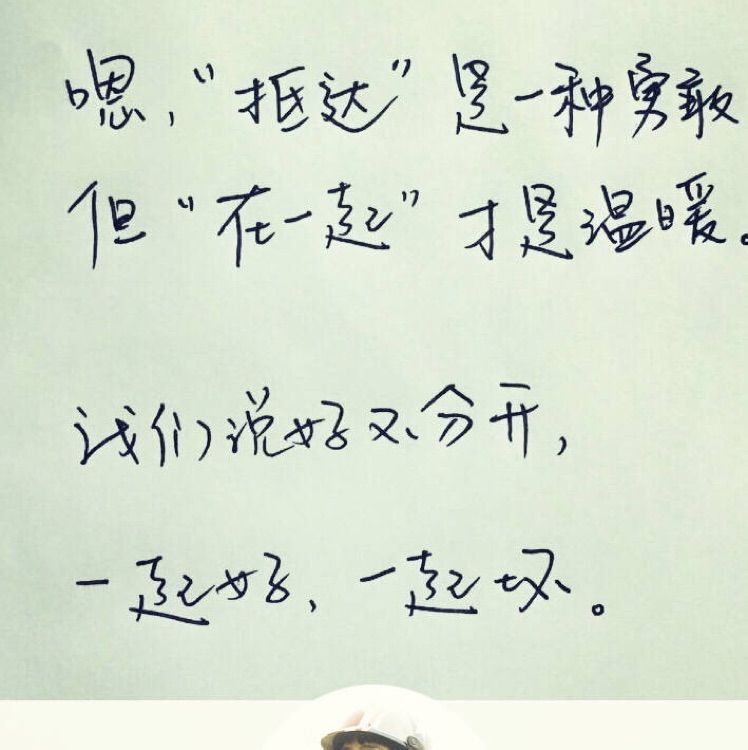 嗯，“抵达”是一种勇敢
但“在一起”才是温暖。
我们说好不分开，
一起好、一起坏。